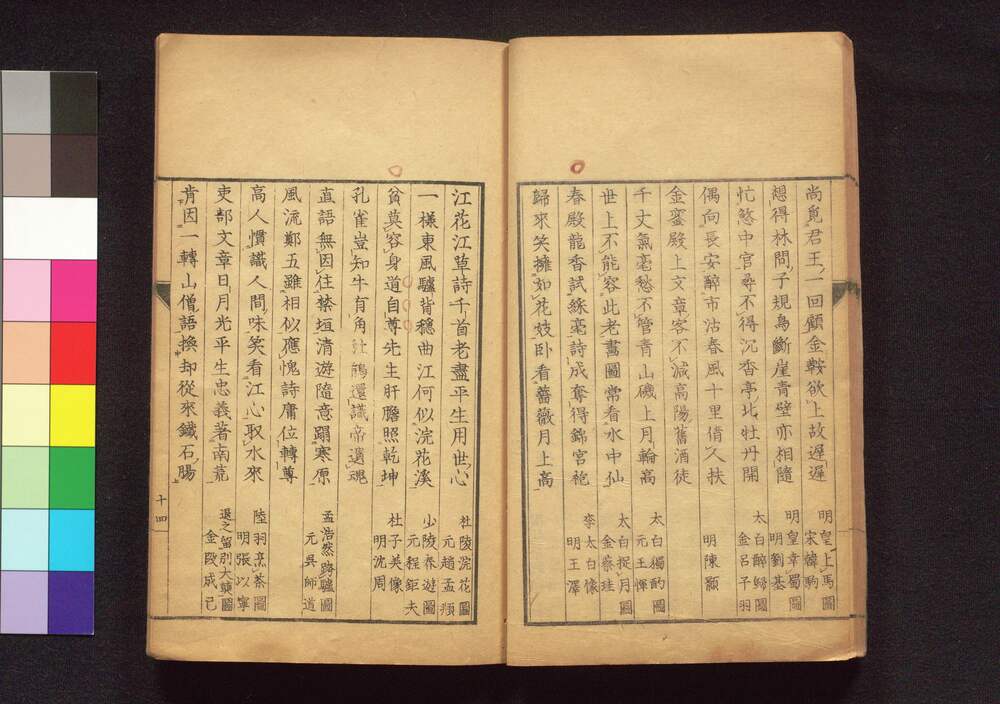 尚覓君王一回顧金鞍欲上故遲遲
明皇上馬圖
宋韓駒
想得林間子規鳥斷崖青壁亦相隨
明皇幸蜀圖
明劉基
忙煞中官尋不得沉香亭北牡丹開
太白醉歸圖
金呂子羽
偶向長安醉市沽春風十里倩人扶
金鑾殿上文章客不減高陽舊酒徒
明陳顥
千丈氣毫愁不管青山磯上月輪高
太白獨酌圖
元王惲
世上不能容此老畫圖常看水中仙
太白捉月圖
金蔡珪
春殿龍香試綵毫詩成奪得錦宮袍
李太白像
明王澤
歸來笑擁如花妓卧看薔薇月上高
江花江草詩千首老盡平生用世心
杜陵浣花圖
元趙孟頫
一樣東風驢背穩曲江何似浣花溪
少陵春遊圖
元程鉅夫
貧莫容身道自尊先生肝膽照乾坤
杜子美像
明沈周
孔雀豈知牛有角杜鵑還識帝遺魂
直語無因住禁垣清遊隨意蹋寒原
孟浩然跨驢圖
元吳師道
風流鄭五雖相似應愧詩庸位轉尊
高人慣識人間味笑看江心取水來
陸羽烹茶圖
明張以寧
吏部文章日月光平生忠義著南荒
退之留別大顛圖
金段成己
肯因一轉山僧語換却從來鐵石腸
十四